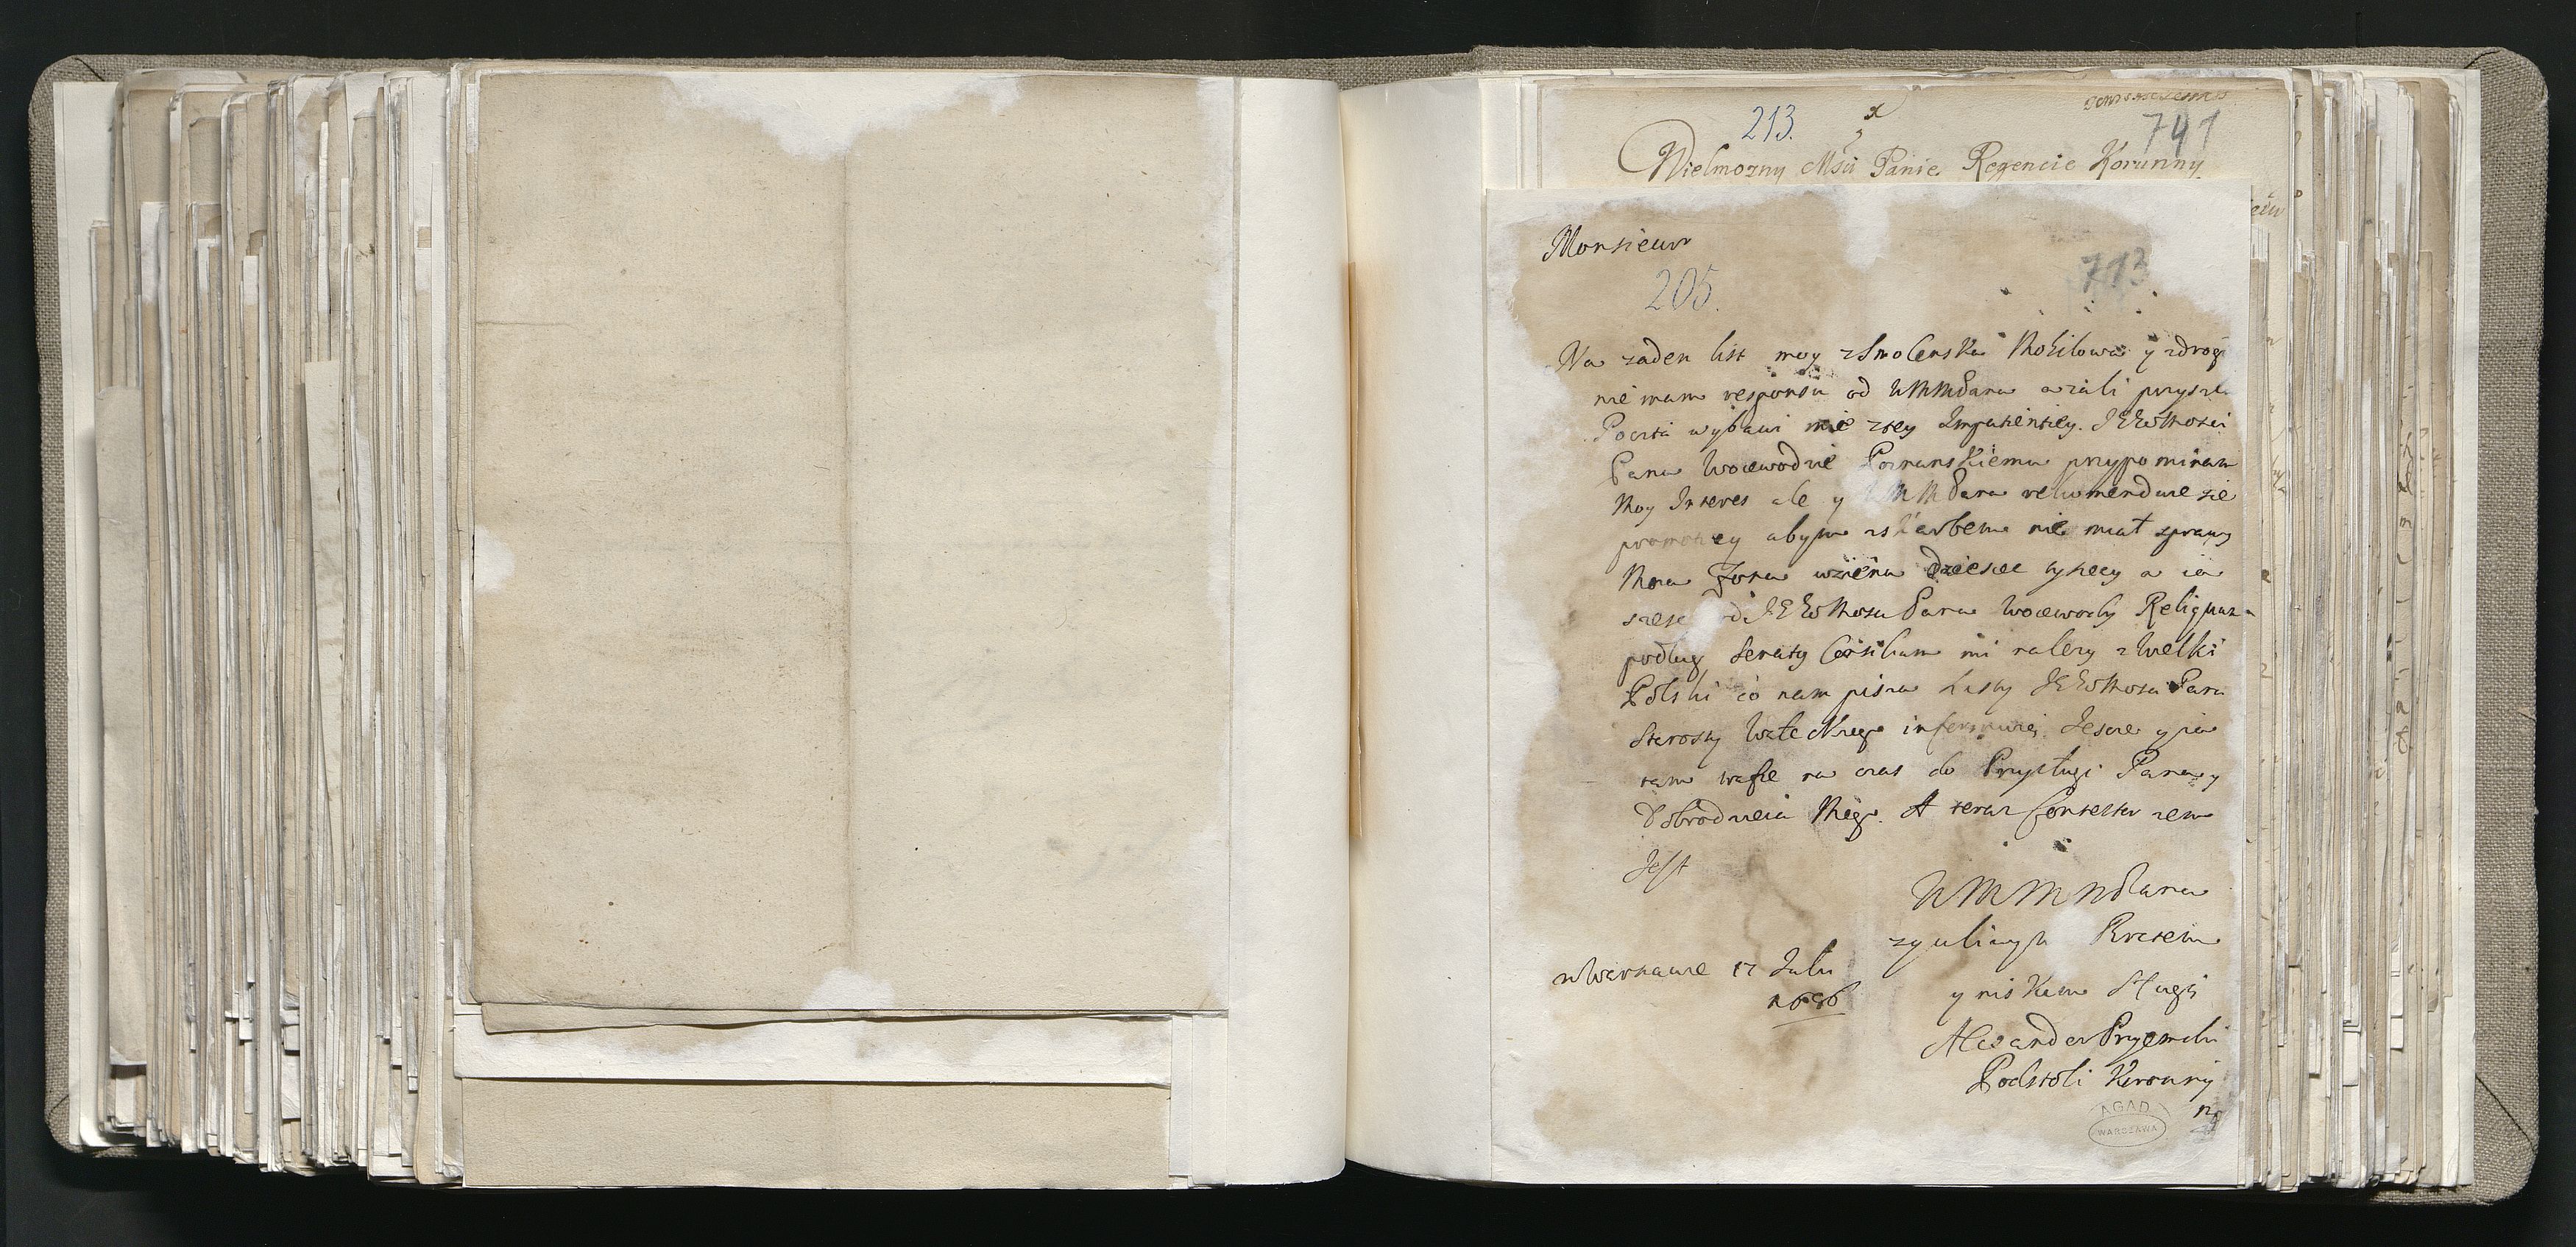 213.
741
Wielmozny Msci Panie Regencie Korunny
Monsieur
205.
713
Na zaden list moy z Smolenska Mohilowa y zdrogi
nie mam responsu od WMMPana azali przysz
Poczta wybawi mie z tey Impatientiey. JEWMosci
Panu Woiewodzie Poznanskiemu przypominam
Moy Interes ale y WMMPanu rekomenduie sie
promocey abym z skarbem nie miał sprawy
Mona Zona wziena dziesiec tysiecy a ia
szesc od JEWMosci Pana Woiewody
podług Senatus Consilium mi nalezy z Welki
Polski co nam pisza Listy JEWMosci Pana
Starosty informuią Jescze y ia
tam trafie na czas do Przysługi Pana y
Dobrodzieia Mego. A teraz Contestor zem
Jest
WMMMPana
zyczliwym Bratem
y niskim Sługą
Alexander Przyemski
Podstoli Koronny
w Warszawie 17 Julii
1686
AGAD
WARSZAWA